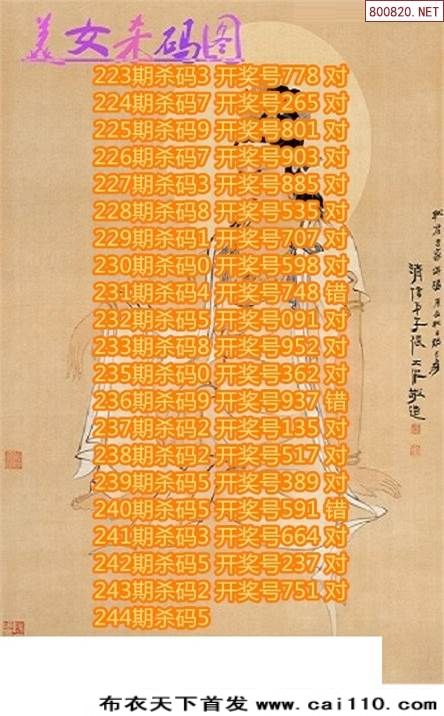 800820.NET
美女杀码图
223期杀码3 开奖号778 对
224期杀码7 开奖号265 对
225期杀码9 开奖号801 对
226期杀码7 开奖号903 对
227期杀码3 开奖号885 对
228期杀码8 开奖号535 对
229期杀码1 开奖号707 对
230期杀码0 开奖号598 对
231期杀码4 开奖号744 错
232期杀码5 开奖号091 对
233期杀码8 开奖号952 对
235期杀码0 开奖号362 对
236期杀码9 开奖号937 错
237期杀码2 开奖号135 对
238期杀码2 开奖号517 对
239期杀码5 开奖号389 对
240期杀码5 开奖号591 错
241期杀码3 开奖号664 对
242期杀码5 开奖号237 对
243期杀码2 开奖号751 对
244期杀码5
布衣天下首发 www.cai110.com